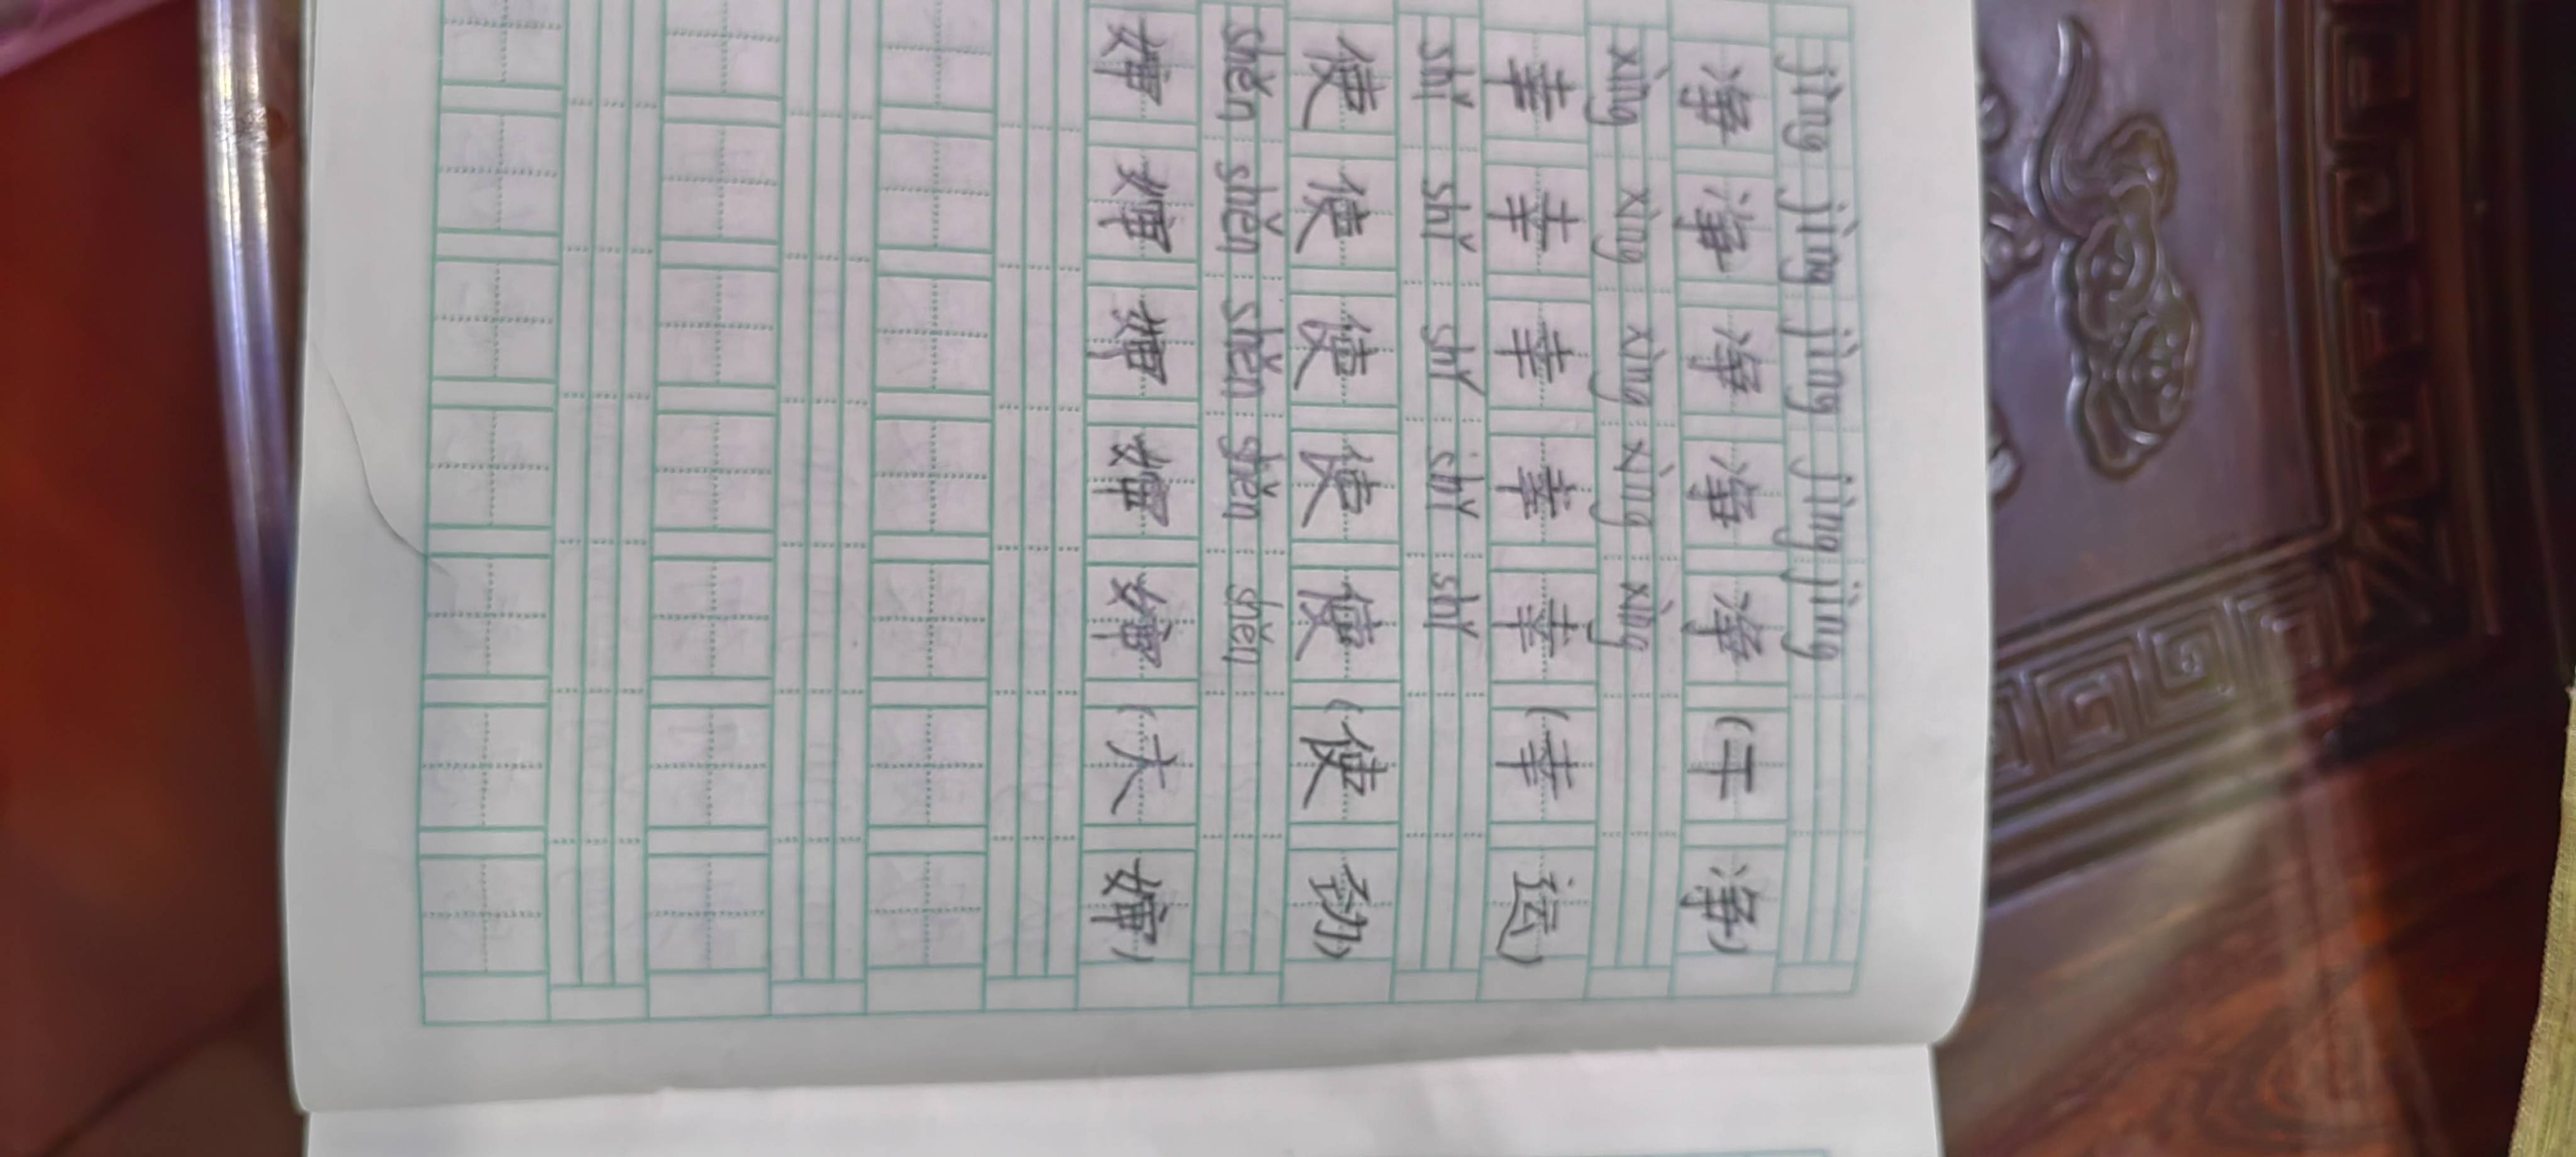 jìng jìng jìng jìng jìng
净 净 净 净 净 (干 净)
xìng xìng xìng xìng xìng
幸 幸 幸 幸 幸 (幸 运)
shǐ shǐ shǐ shǐ shǐ
使 使 使 使 使 (使 劲)
shěn shěn shěn shěn shěn
婶 婶 婶 婶 婶 (大 婶)